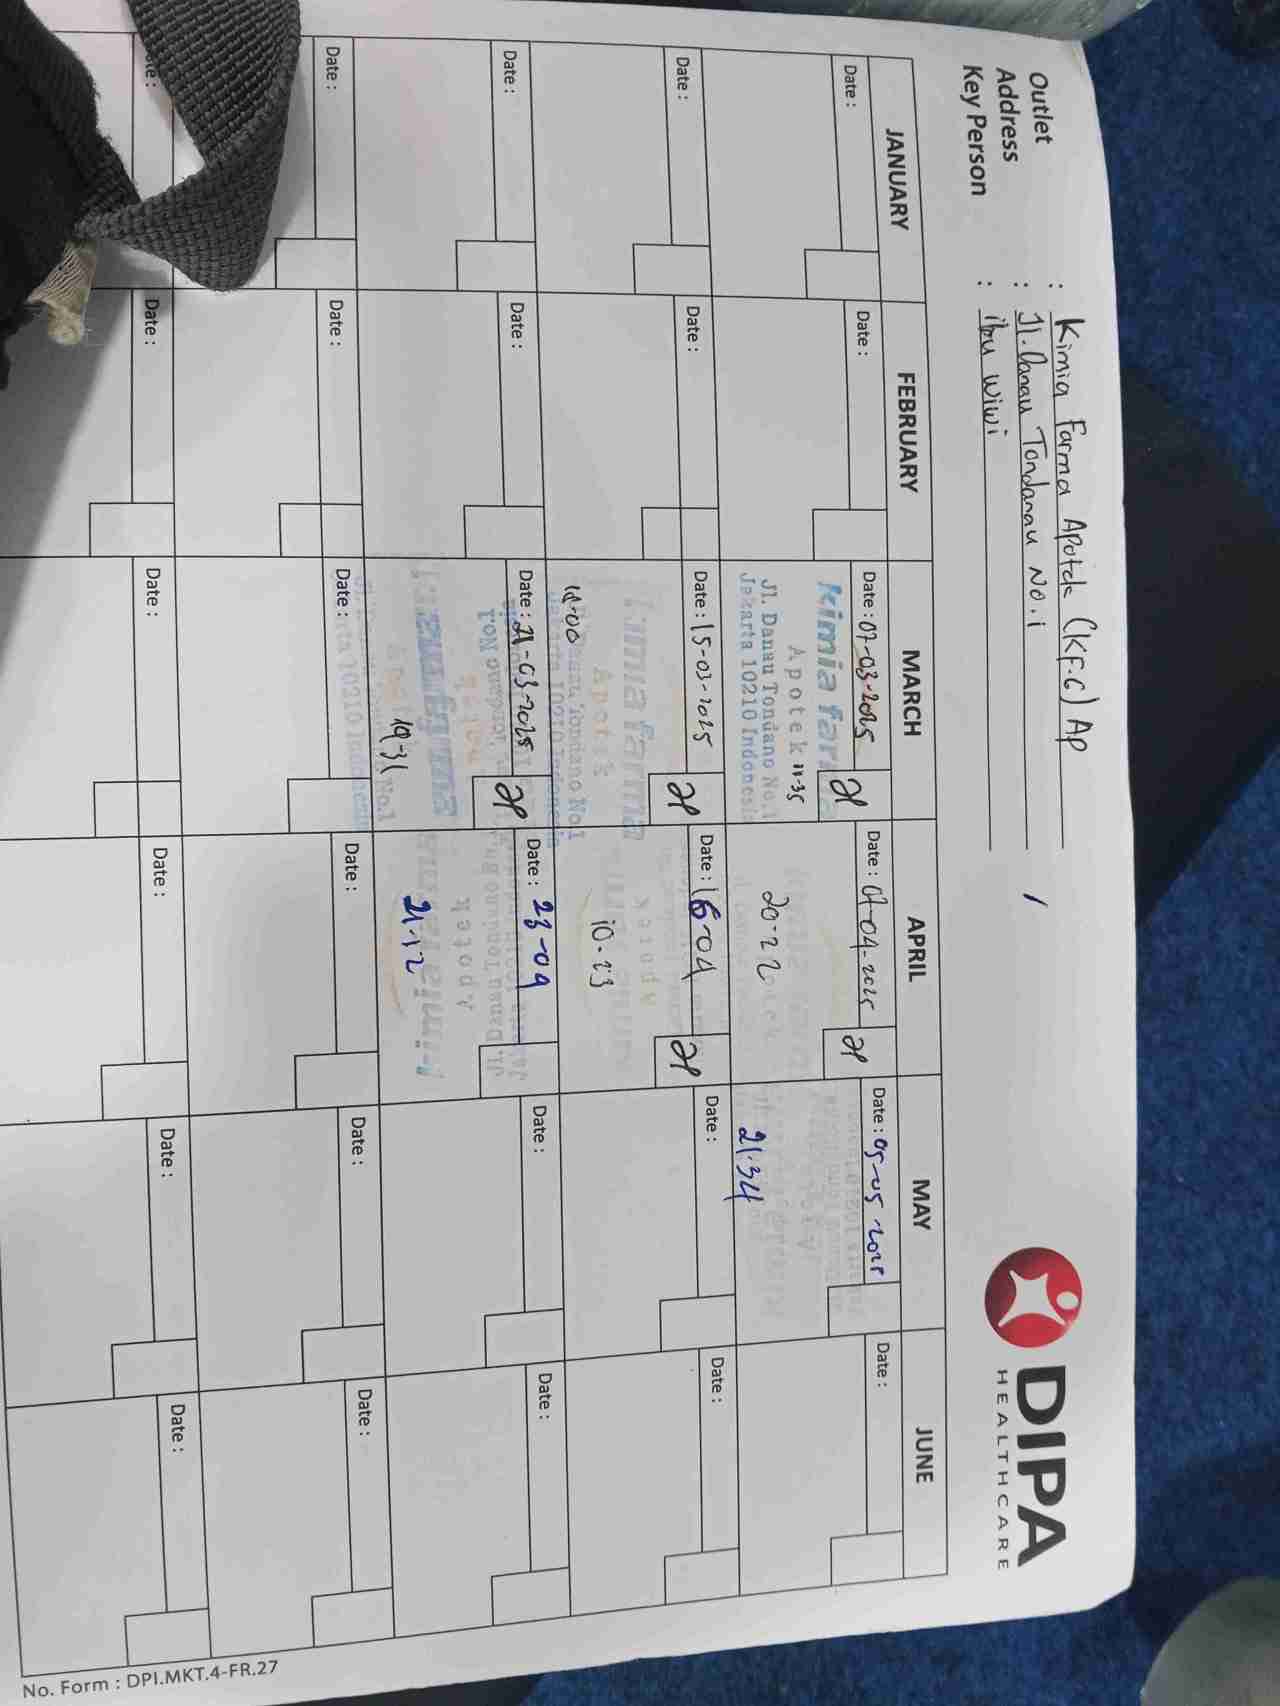 Outlet : Kimia Farma Apotek (KF.6) Ap
Address : Jl. Danau Tondanau No.1
Key Person : ibu wiwi
DIPA
HEALTHCARE
JANUARY FEBRUARY MARCH APRIL MAY JUNE
Date : Date : Date : 07-03-2025 Date : 07-04-2025 Date : 05-05-2025 Date :
kimia farma
Apotek 11-35
Jl. Danau Tondano No.1
Jakarta 10210 Indonesia
20-22
21.34
Date : Date : Date : 15-03-2025 Date : 16-04 Date : Date :
kimia farma
Apotek
Danau Tondano No.1
Jakarta 10210 Indonesia
10.23
Date : Date : Date : 21-03-2025 Date : 23-04 Date : Date :
19-31
21-12
Date : Date : Date : Date : Date : Date :
Date : Date : Date : Date : Date : Date :
No. Form : DPI.MKT.4-FR.27